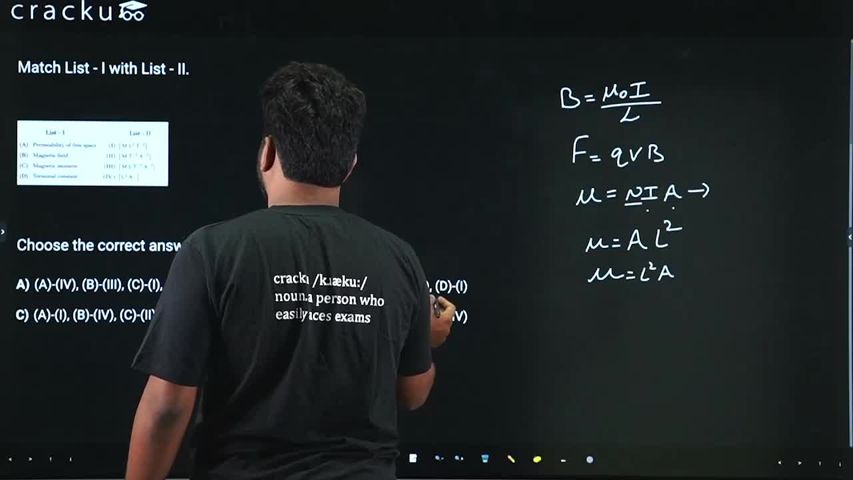 cracku
Match List - I with List - II.
List - I List - II
(A) Permeability of free space
(B) Magnetic field
(C) Magnetic moment
(D) Torsional constant
Choose the correct answ
A) (A)-(IV), (B)-(III), (C)-(I),
, (D)-(I)
C) (A)-(I), (B)-(IV), (C)-(II)
V)
cracku /kɹæku:/
noun.a person who
easily aces exams
B = μ₀I / L
F = qvB
μ = NIA →
μ = A L²
μ = L²A